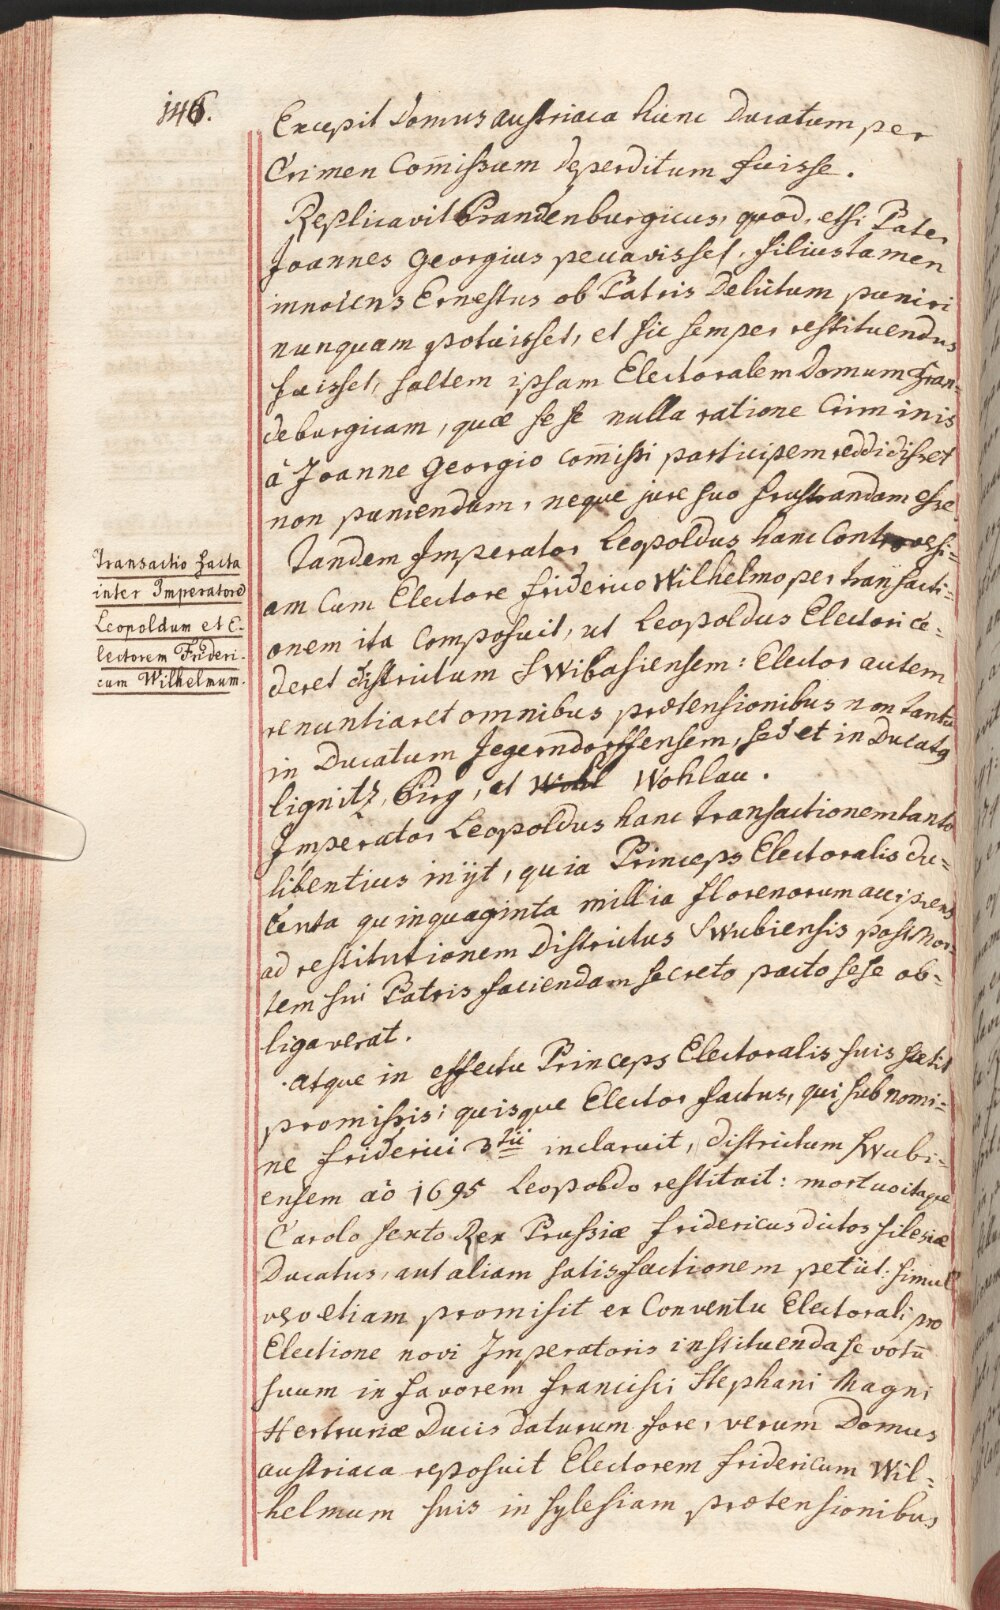 146.
Excepit Domus austriaca hunc Ducatum per
Crimen Com̄issum deperditum fuisse.
Replicavit Brandenburgicus, quod, etsi Pater
Joannes Georgius peccavisset, filius tamen
innocens Ernestus ob Patris Delictum puniri
nunquam potuisset, et sic semper restituendus
fuisset, saltem ipsam Electoralem Domum Bran=
deburgicam, quæ sese nulla ratione Criminis
à Joanne Georgio com̄issi participem reddidisset
non puniendam, neque jure suo frustrandam esse.
Tandem Imperator Leopoldus hanc Controvesi=
am Cum Electore friderico Wilhelmo per transacti=
onem ita Composuit, ut Leopoldus Electori ce=
deret districtum Swibusiensem: Elector autem
renuntiaret omnibus prætensionibus non tantū
in Ducatum Jegerndorffensem, sed et in Ducatq
lignitz, Birg, et Wohl Wohlau.
Imperator Leopoldus hanc transactionem tanto
libentius inijt, quia Princeps Electoralis du=
centa quinquaginta millia florenorum accipiens
ad restitutionem Districtus Swubiensis post Mor=
tem sui Patris faciendam secreto pacto sese ob=
ligaverat.
Atque in effectu Princeps Electoralis suis stetit
promissis; quisque Elector factus, qui sub nomi=
ne friderici 3tii inclaruit, districtum Swubi=
ensem aō 1695 Leopoldo restituit: mortuo itaque
Carolo sexto Rex Prussiæ fridericus dictos silesiæ
Ducatus, aut aliam satisfactionem petiit: simul
vero etiam promisit ex Conventu Electorali pro
Electione novi Imperatoris instituenda se votū
suum in favorem francisci Stephani Magni
Hertruriæ Ducis daturum fore, verum Domus
austriaca reposuit Electorem fridericum Wil=
helmum suis in sylesiam prætensionibus
Transactio facta
inter Imperatorē
Leopoldum et E-
lectorem Frideri-
cum Wilhelmum.